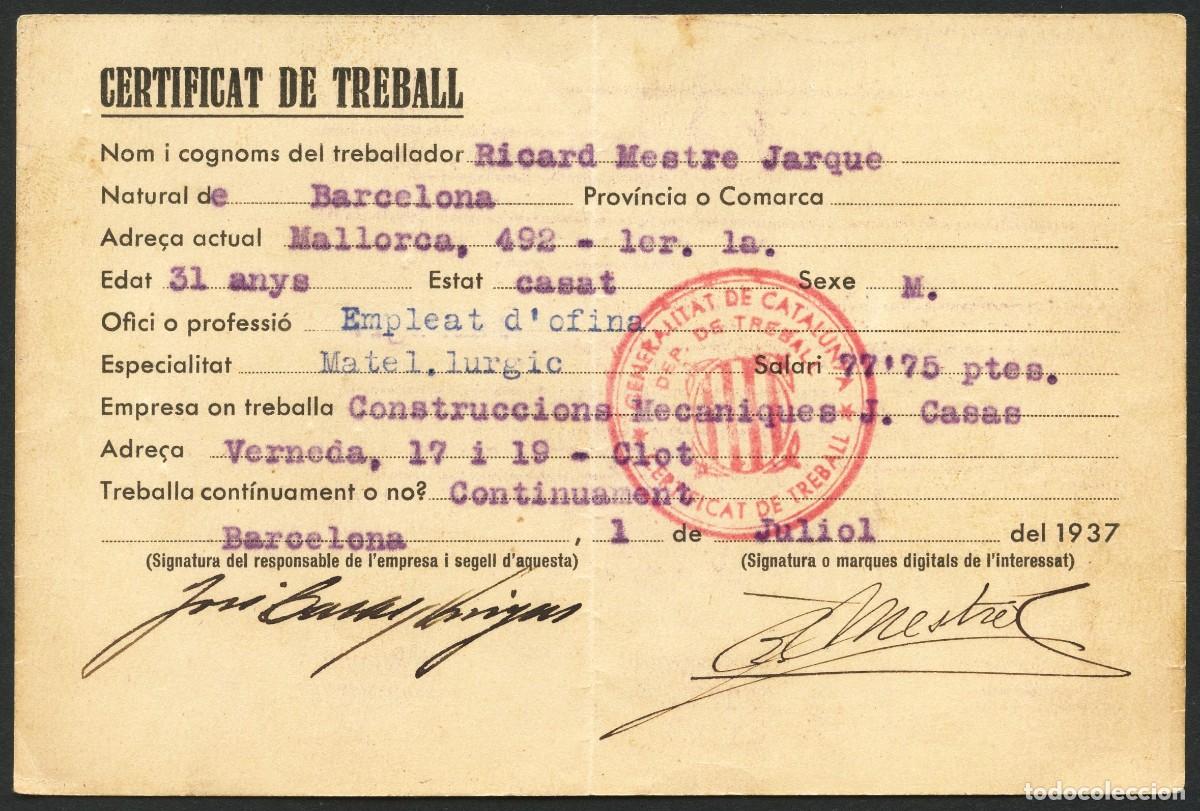 CERTIFICAT DE TREBALL
Nom i cognoms del treballador Ricard Mestre Jarque
Natural de Barcelona Província o Comarca
Adreça actual Mallorca, 492 - 1er. 1a.
Edat 31 anys Estat casat Sexe M.
Ofici o professió Empleat d'ofina
Especialitat Matel.lurgic Salari 77'75 ptes.
Empresa on treballa Construccions Mecaniques J. Casas
Adreça Verneda, 17 i 19 - Clot
Treballa contínuament o no? Continuament
Barcelona, 1 de Juliol del 1937
(Signatura del responsable de l'empresa i segell d'aquesta) (Signatura o marques digitals de l'interessat)
José Casas
Mestre
GENERALITAT DE CATALUNYA
DEP. DE TREBALL
CERTIFICAT DE TREBALL
todocoleccion